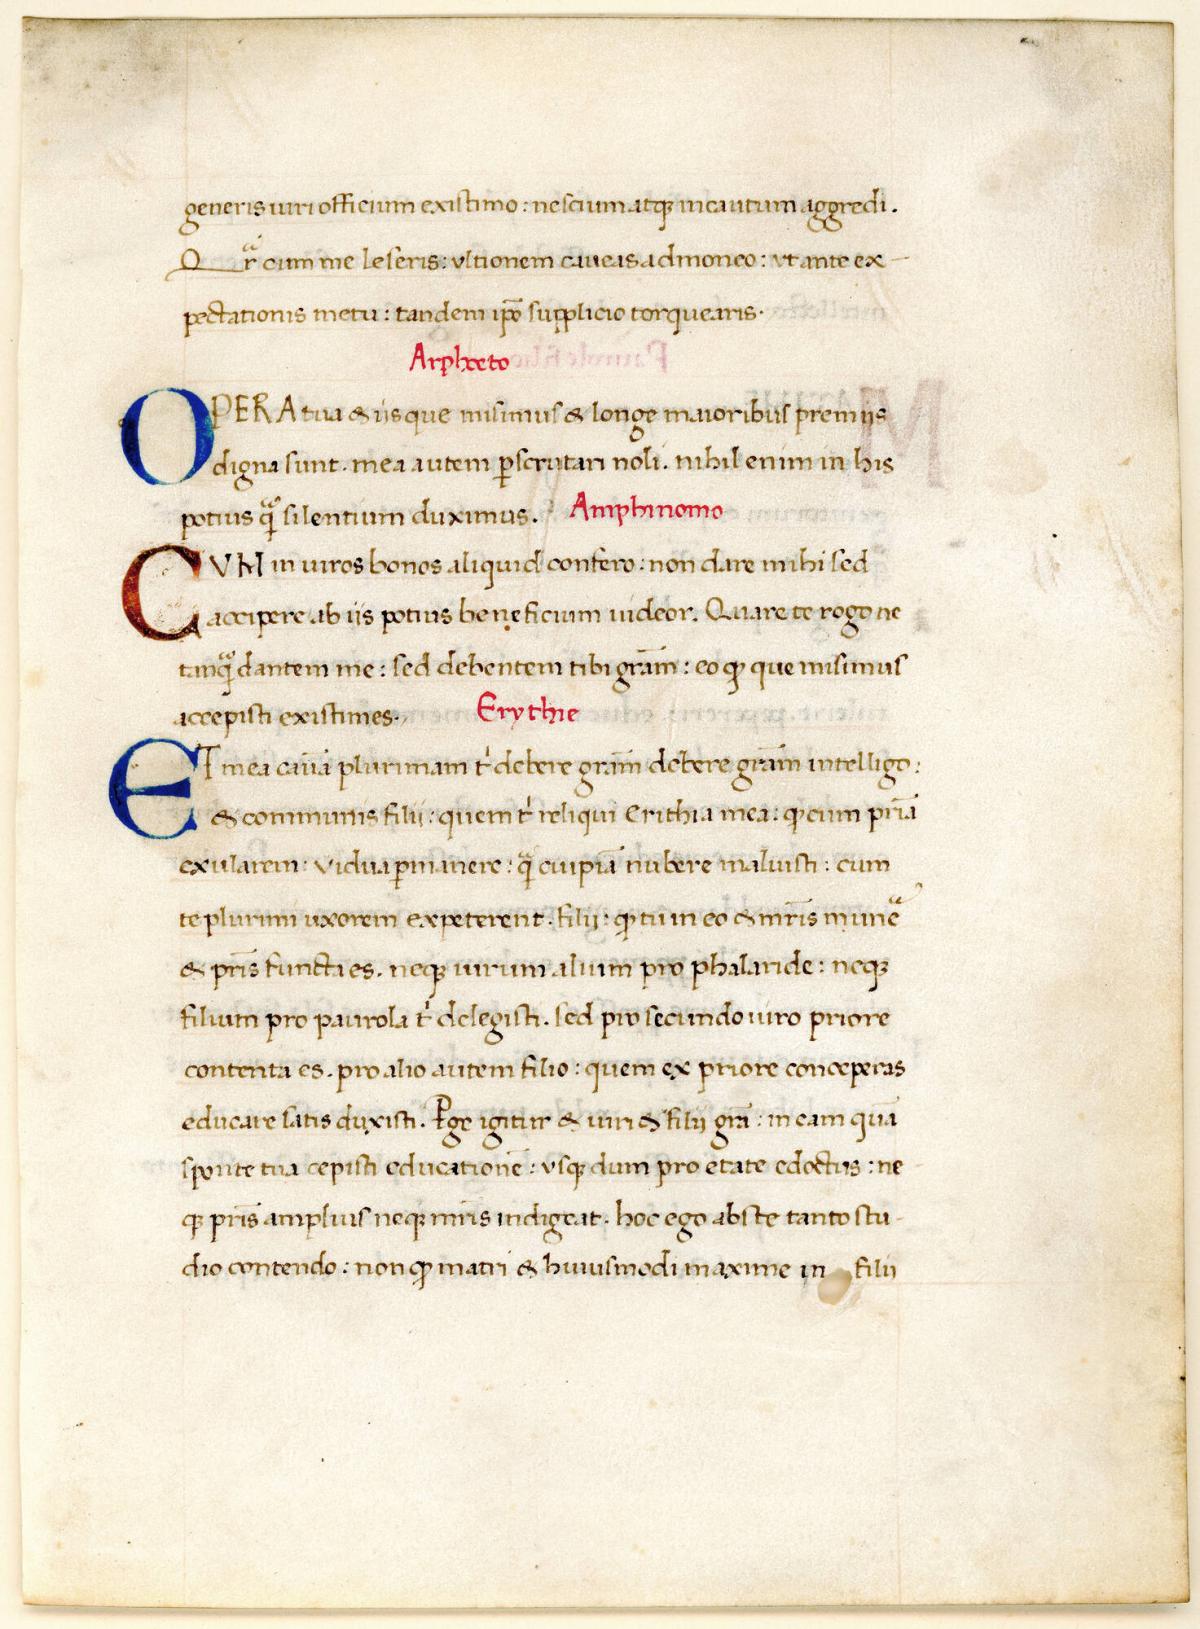 generis uiri officium existimo : nescium atqꝫ incautum aggredi .
Qᷓr cum me leseris : vltionem caueas admoneo : vt ante ex-
pectationis metu : tandem ip̄o supplicio torquearis .
Arpheto
OPERA tua & iis que misimus & longe maioribus premiis
digna sunt . mea autem ꝑscrutari noli . nihil enim in his
potius qᷓ silentium duximus . Amphinomo
CVM in uiros bonos aliquid confero : non dare mihi sed
accipere ab iis potius beneficium uideor . Quare te rogo ne
tanqᷓ dantem me : sed debentem tibi gram̄ : eo ꝙ que misimus
accepisti existimes . Erythie
ET mea cauā plurimam t' debere gram̄ debere gram̄ intelligo :
& communis filii : quem t' reliqui Erithia mea : ꝙ cum priā
exularem : vidua ꝑmanere : qᷓ cuipiā nubere maluisti : cum
te plurimi uxorem expeterent . filii : ꝙ tu in eo & mr̄is munē
& pr̄is functa es . neqꝫ uirum alium pro phalaride : neqꝫ
filium pro paurola t' delegisti . sed pro secundo uiro priore
contenta es . pro alio autem filio : quem ex priore conceperas
educare satis duxisti . Ꝑge igitur & uiri & filii grā : in eam quā
sponte tua cepisti educationē : vsqꝫ dum pro etate edoctus : ne
qꝫ pr̄is amplius neqꝫ mr̄is indigeat . hoc ego abs te tanto stu-
dio contendo : non ꝙ matri & huiusmodi maxime in filii